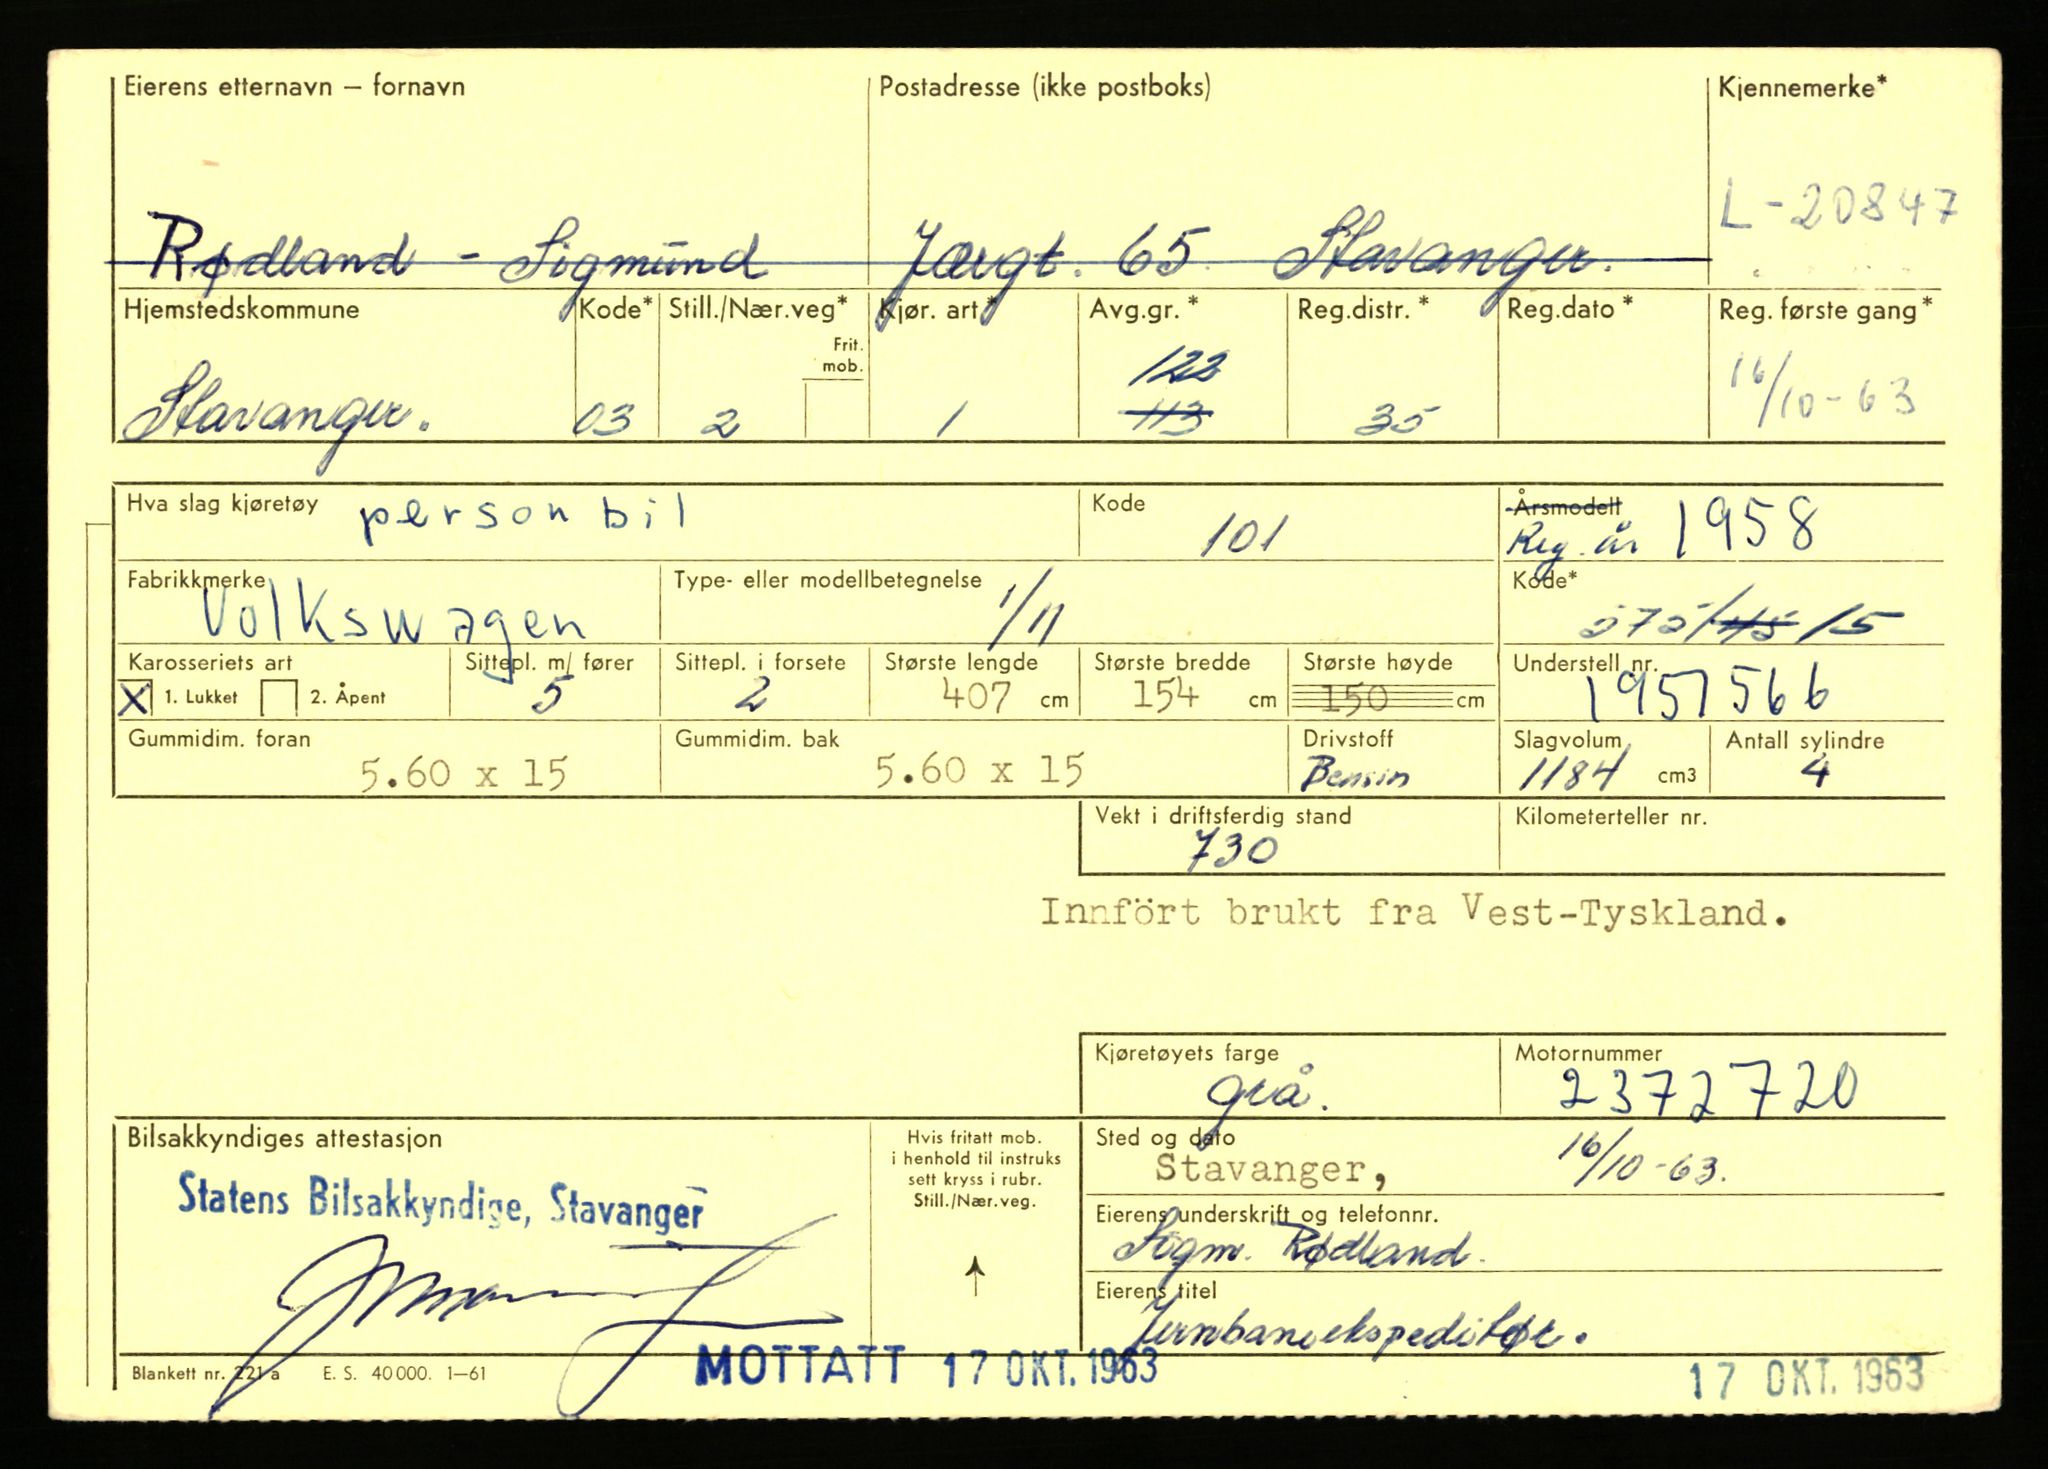 Eierens etternavn – fornavn Postadresse (ikke postboks) Kjennemerke*
L-20847
Rødland - Sigmund Jærgt. 65 Stavanger.
Hjemstedskommune Kode* Still./Nær.veg* Kjør. art* Avg.gr.* Reg.distr.* Reg.dato* Reg. første gang*
Frit. mob.
122
Stavanger. 03 2 1 113 35 16/10-63
Hva slag kjøretøy personbil Kode 101 Årsmodell Reg. år 1958
Fabrikkmerke Volkswagen Type- eller modellbetegnelse 1/11 Kode* 15
Karosseriets art Sittepl. m/ fører Sittepl. i forsete Største lengde Største bredde Største høyde Understell nr.
X 1. Lukket 2. Åpent 5 2 407 cm 154 cm 150 cm 1951566
Gummidim. foran Gummidim. bak Drivstoff Slagvolum Antall sylindre
5.60 x 15 5.60 x 15 Bensin 1184 cm3 4
Vekt i driftsferdig stand Kilometerteller nr.
730
Innfört brukt fra Vest-Tyskland.
Kjøretøyets farge Motornummer
grå. 2372720
Bilsakkyndiges attestasjon
Statens Bilsakkyndige, Stavanger
Hvis fritatt mob.
i henhold til instruks
sett kryss i rubr.
Still./Nær.veg.
Sted og dato
Stavanger, 16/10-63.
Eierens underskrift og telefonnr.
Sigm. Rødland.
Eierens titel
Jernbaneekspeditør.
Blankett nr. 221 a E. S. 40 000. 1–61
MOTTATT 17 OKT. 1963
17 OKT. 1963